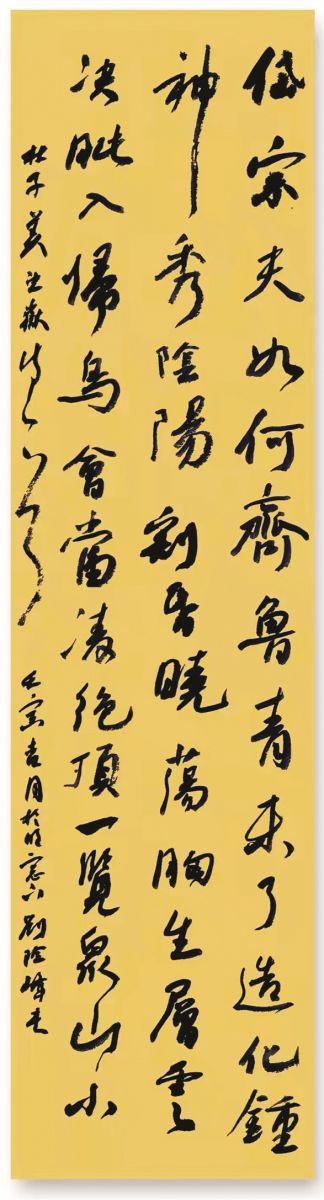 岱宗夫如何齊魯青未了造化鍾
神秀陰陽割昏曉蕩胸生層雲
决眦入歸鳥會當凌絶頂一覽衆山小
杜子美望嶽詩 壬寅吉月於 窗下